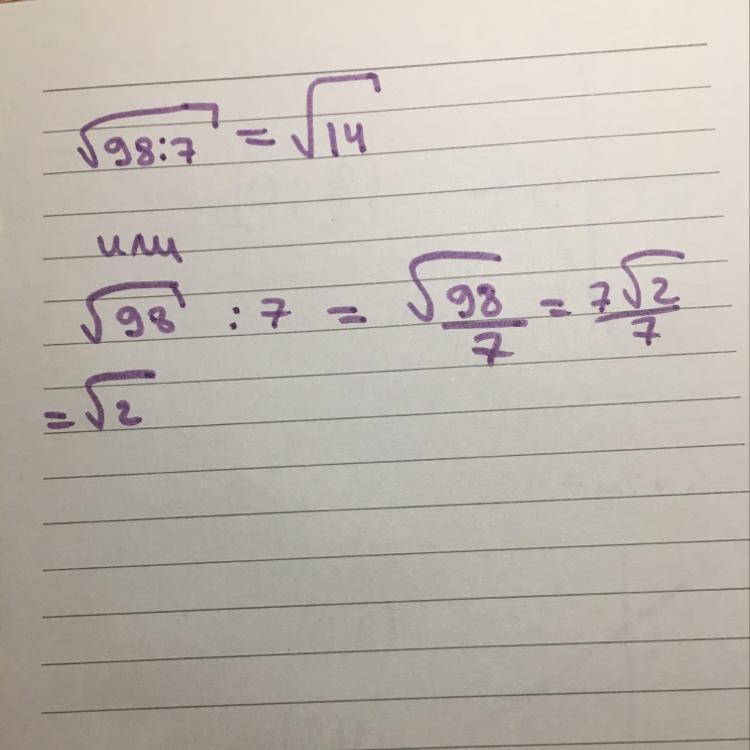 √98:7 = √14
или
√98 : 7 = √98/7 = 7√2/7
= √2